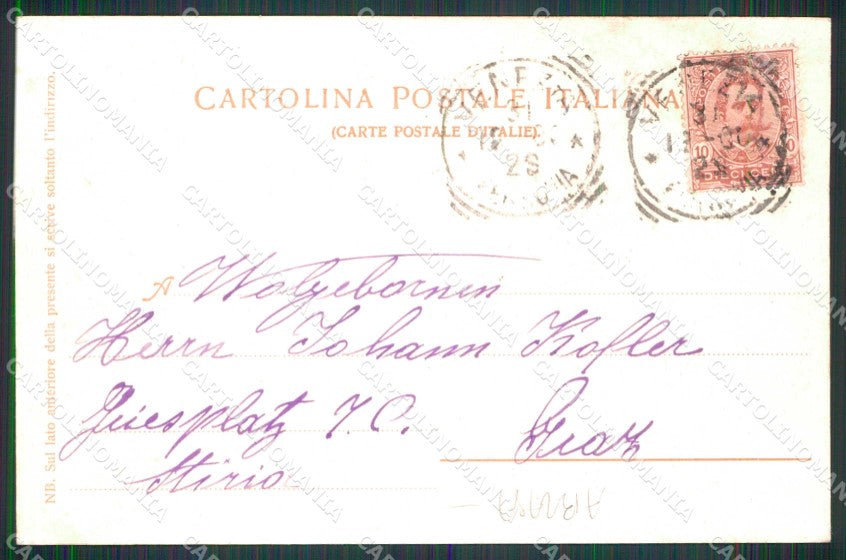 CARTOLINA POSTALE ITALIANA
(CARTE POSTALE D'ITALIE).
10 10
A Wolgebornen
Herrn Johann Kofler
7 C. Graz
Stiria
NB. Sul lato anteriore della presente si scrive soltanto l'indirizzo.
VENEZIA
FERROVIA
CARTOLINOMANIA